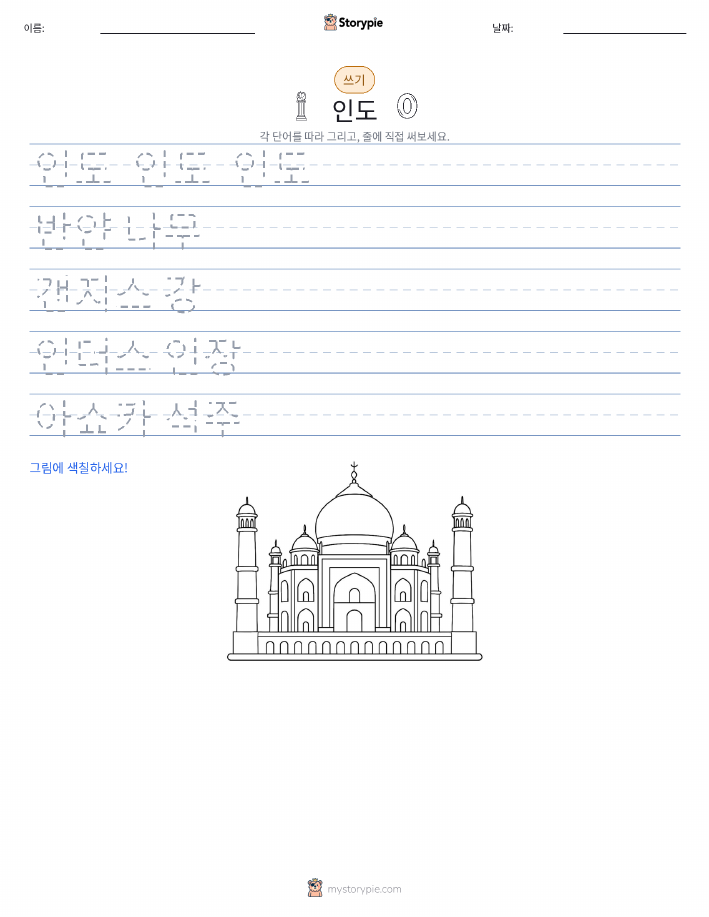 이름:
Storypie
날짜:
쓰기
인도
각 단어를 따라 그리고, 줄에 직접 써보세요.
인도 인도 인도
반얀 나무
갠지스 강
인더스 인장
아쇼카 석주
그림에 색칠하세요!
mystorypie.com